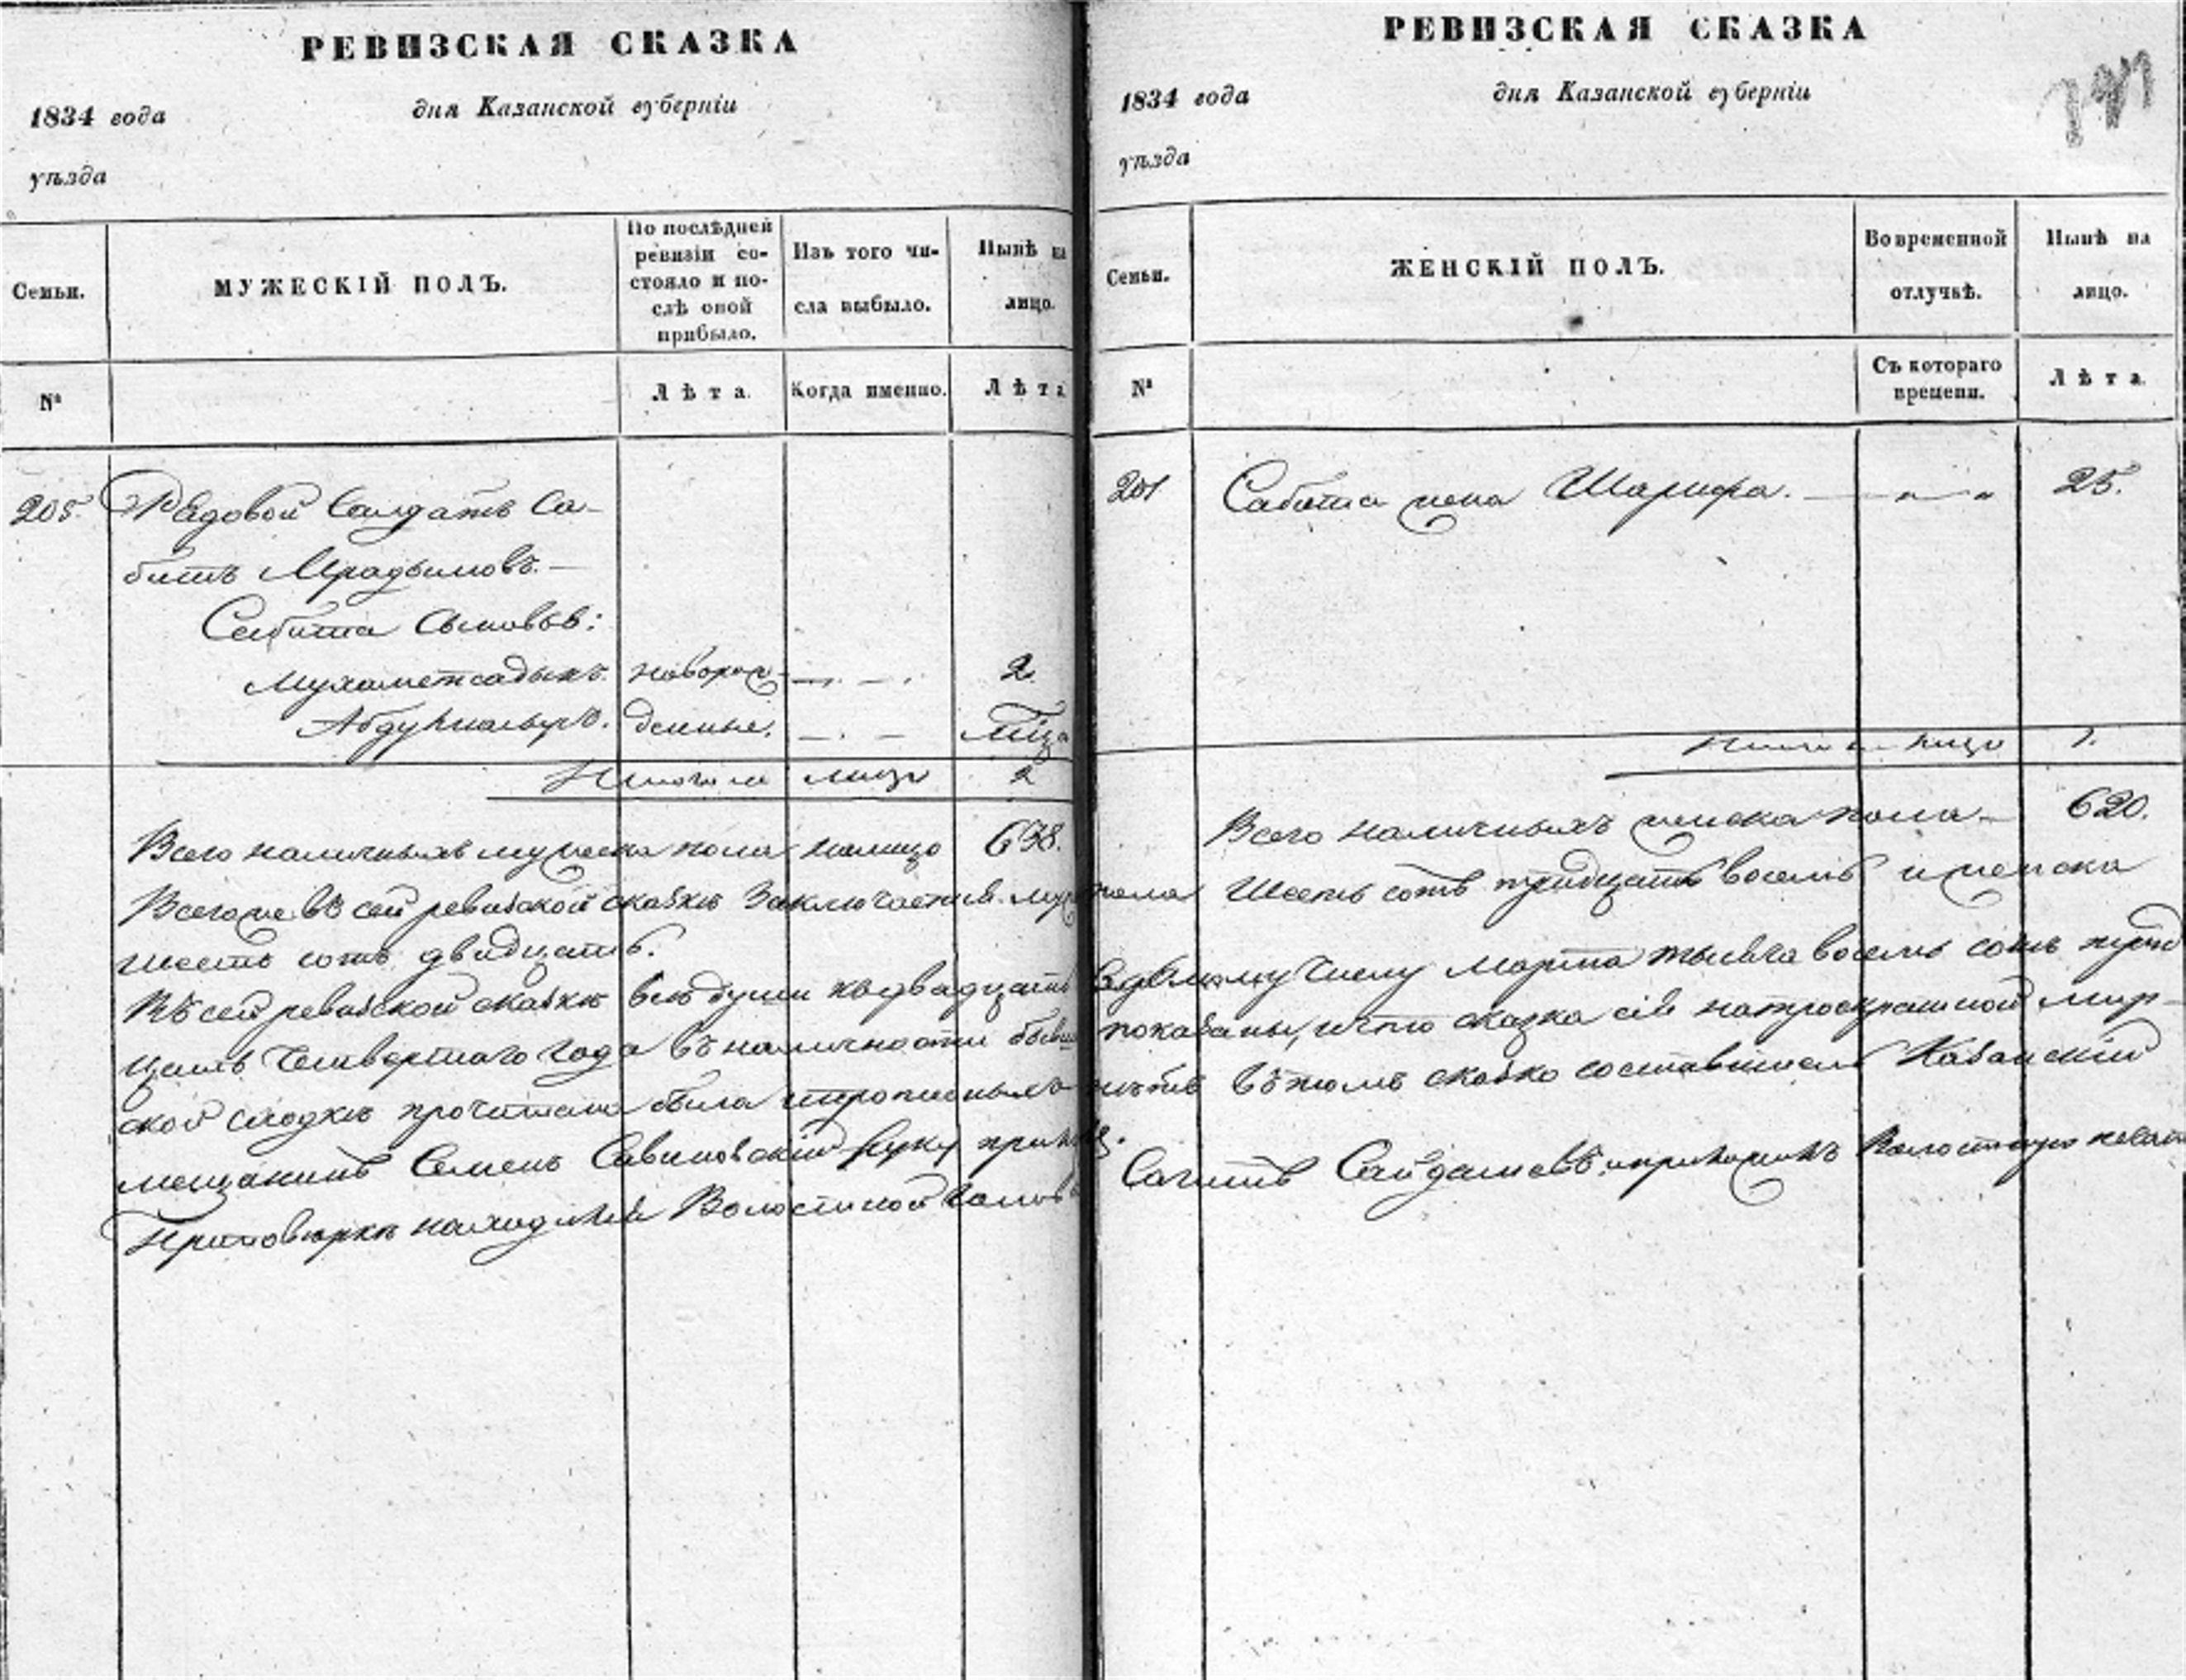 РЕВИЗСКАЯ СКАЗКА
1834 года
дня Казанской губерніи
уѣзда
Семьи.
МУЖЕСКІЙ ПОЛЪ.
По послѣдней ревизіи состояло и послѣ оной прибыло.
Изъ того числа выбыло.
Нынѣ на лицо.
№
Лѣта.
Когда именно.
Лѣта
205.
Рядовой Солдатъ Са-
битъ
Сабита Сыновья:
Мухаметсадыкъ. новорож- 2.
денные.
Итого на лицо 2
Всего наличныхъ мужеска пола налицо 638.
Всего же въ сей ревизской сказкѣ заключается муж
шесть сотъ двадцать.
Въ сей ревизской сказкѣ всѣ души къ двадцать
цать четвертаго года въ наличности бывш
ской сходкѣ прочитана была и прописнымъ
мещанинъ Семенъ Савиновскій руку прил
При повѣркѣ находился Волостной голов
РЕВИЗСКАЯ СКАЗКА
1834 года
дня Казанской губерніи
уѣзда
Семьи.
ЖЕНСКІЙ ПОЛЪ.
Во временной отлучкѣ.
Нынѣ на лицо.
№
Съ котораго времени.
Лѣта
Сабита жена Шарифа. 25.
на лицо 1.
Всего наличныхъ женска пола 620.
пола шесть сотъ тридцать восемь и женска
числу Марта тысяча восемь сотъ трид
показаны, и что сказка сія на
въ томъ сказко составитель Казанскій
Сагитъ Сайдашевъ и приложилъ Волостную печать